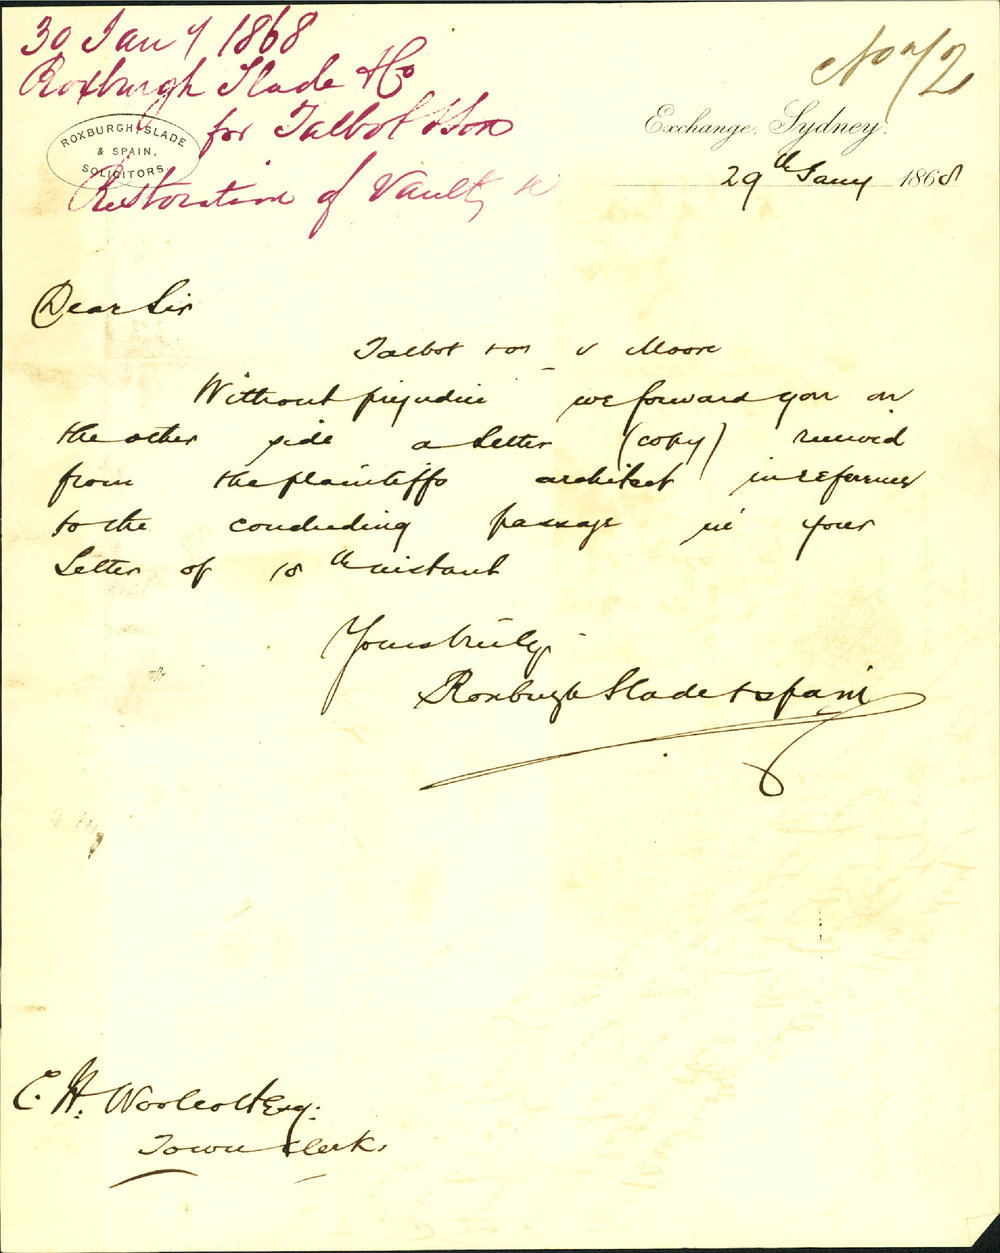 30 Jany 1868
Roxburgh Slade & Co
for Talbot & Son
Restoration of Vault, &c
ROXBURGH, SLADE
& SPAIN,
SOLICITORS.
No 72
Exchange, Sydney.
29th Jany 1868
Dear Sir
Talbot & or v Moore
Without prejudice we forward you on
the other side a Letter (copy) received
from the plaintiffs architect in reference
to the concluding passage in your
Letter of 18th instant
Yours truly
Roxburgh Slade & Spain
C. H. Woolcott Esq:
Town Clerk.